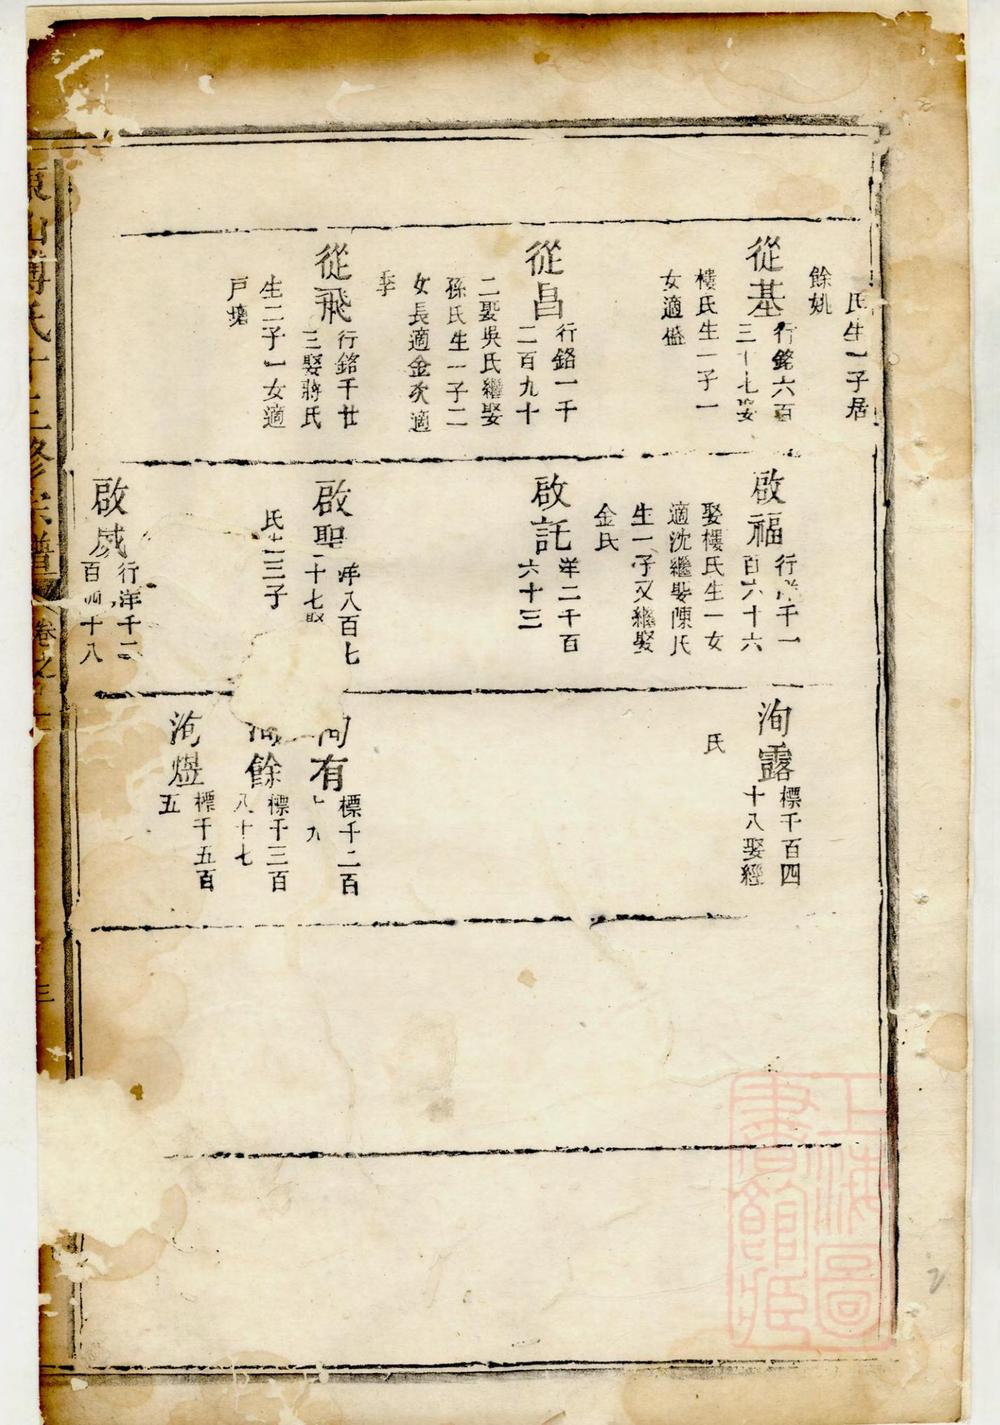 氏生一子居
餘姚
從基
行銘六百
三十七娶
樓氏生一子一
女適
從昌
行銘一千
二百九十
二娶吳氏繼娶
孫氏生一子二
女長適金次適
李
從飛
行銘千廿
三娶蔣氏
生二子一女適
戸塘
啟福
行洋千一
百六十六
娶樓氏生一女
適沈繼娶陳氏
生一子又繼娶
金氏
啟託
洋二千百
六十三
啟聖
洋八百七
十七娶
氏生三子
啟咸
行洋千二
百四十八
洵露
標千百四
十八娶經
氏
洵有
標千二百
九
洵餘
標千三百
八十七
洵煜
標千五百
五
東山傅氏十三修宗譜
卷之
三
上海圖書館藏